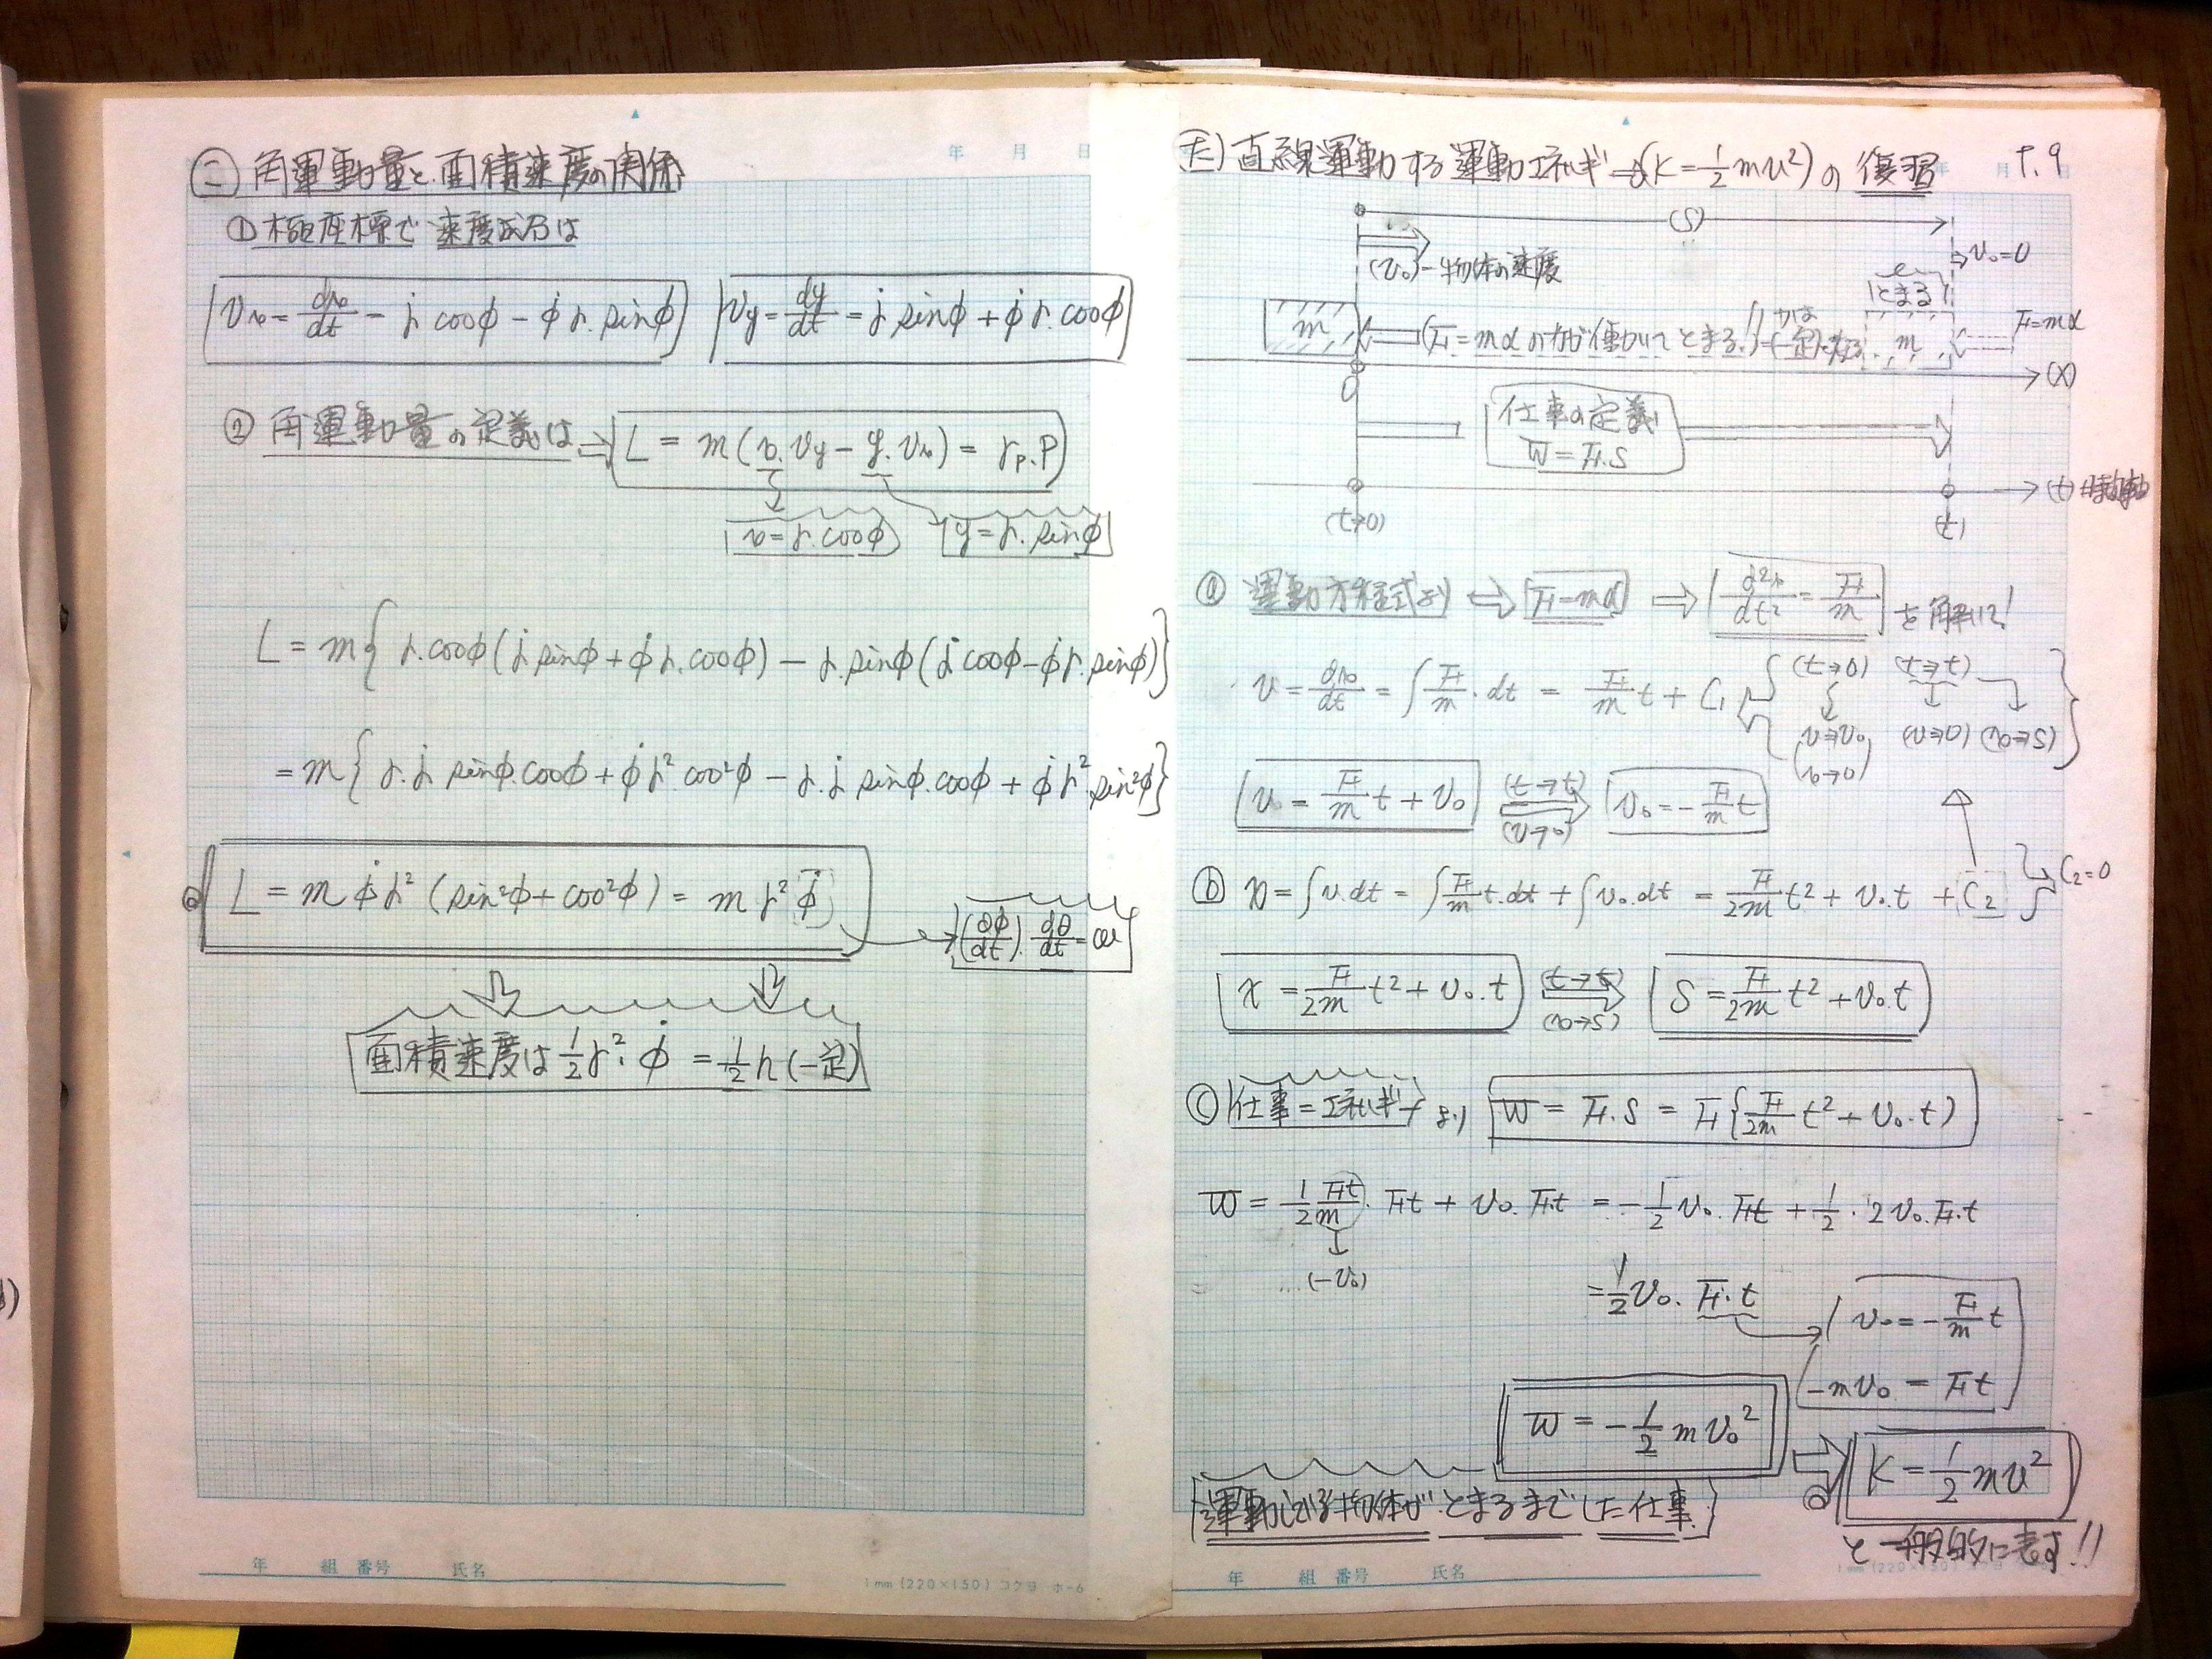 ㊁ 角運動量と面積速度の関係
① 極座標で速度成分は
Vx = dx/dt = ṙ cosφ − φ̇ r. sinφ
Vy = dy/dt = ṙ sinφ + φ̇ r. cosφ
② 角運動量の定義は ⇒ L = m(x. Vy − y. Vx) = rp. P
x = r. cosφ
y = r. sinφ
L = m{ r. cosφ (ṙ sinφ + φ̇ r. cosφ) − r. sinφ (ṙ cosφ − φ̇ r. sinφ)}
= m{ r. ṙ sinφ. cosφ + φ̇ r² cos²φ − r. ṙ sinφ. cosφ + φ̇ r². sin²φ}
L = m φ̇ r² (sin²φ + cos²φ) = m r² φ̇
(dφ/dt). dθ/dt = ω
面積速度は 1/2 r². φ̇ = 1/2 h (一定)
年 組 番号 氏名
1mm (220×150) コクヨ ホ-6
直線運動する運動エネルギー (K = 1/2 mv²) の 復習 P. 9
(S)
(v₀) - 物体の速度
v₀ = 0
とまる
m
(F = mα の力が働いてとまる!) 力は一定である
m
F = mα
0
(x)
仕事の定義
W = F. S
(t→0)
(t)
(t) 時軸
ⓐ 運動方程式より ⇔ F = mα ⇒ d²x/dt² = F/m を解いて!
v = dx/dt = ∫ F/m. dt = F/m t + C₁
(t→0) (t→t)
(v→v₀ x→0) (v→0) (x→S)
v = F/m t + v₀ (t→t) (v→0) v₀ = − F/m t
ⓑ x = ∫ v. dt = ∫ F/m t. dt + ∫ v₀. dt = F/2m t² + v₀. t + C₂
C₂ = 0
x = F/2m t² + v₀. t (t→t) (x→S) S = F/2m t² + v₀. t
ⓒ 仕事 = エネルギー より W = F. S = F{F/2m t² + v₀. t}
W = 1/2 Ft/m. Ft + v₀. F. t = − 1/2 v₀. Ft + 1/2 . 2 v₀. F. t
(−v₀)
= 1/2 v₀. F. t
v₀ = − F/m t
−m v₀ = F t
W = − 1/2 m v₀²
K = 1/2 m v²
運動している物体がとまるまでした仕事.
と一般的に表す!!
年 組 番号 氏名